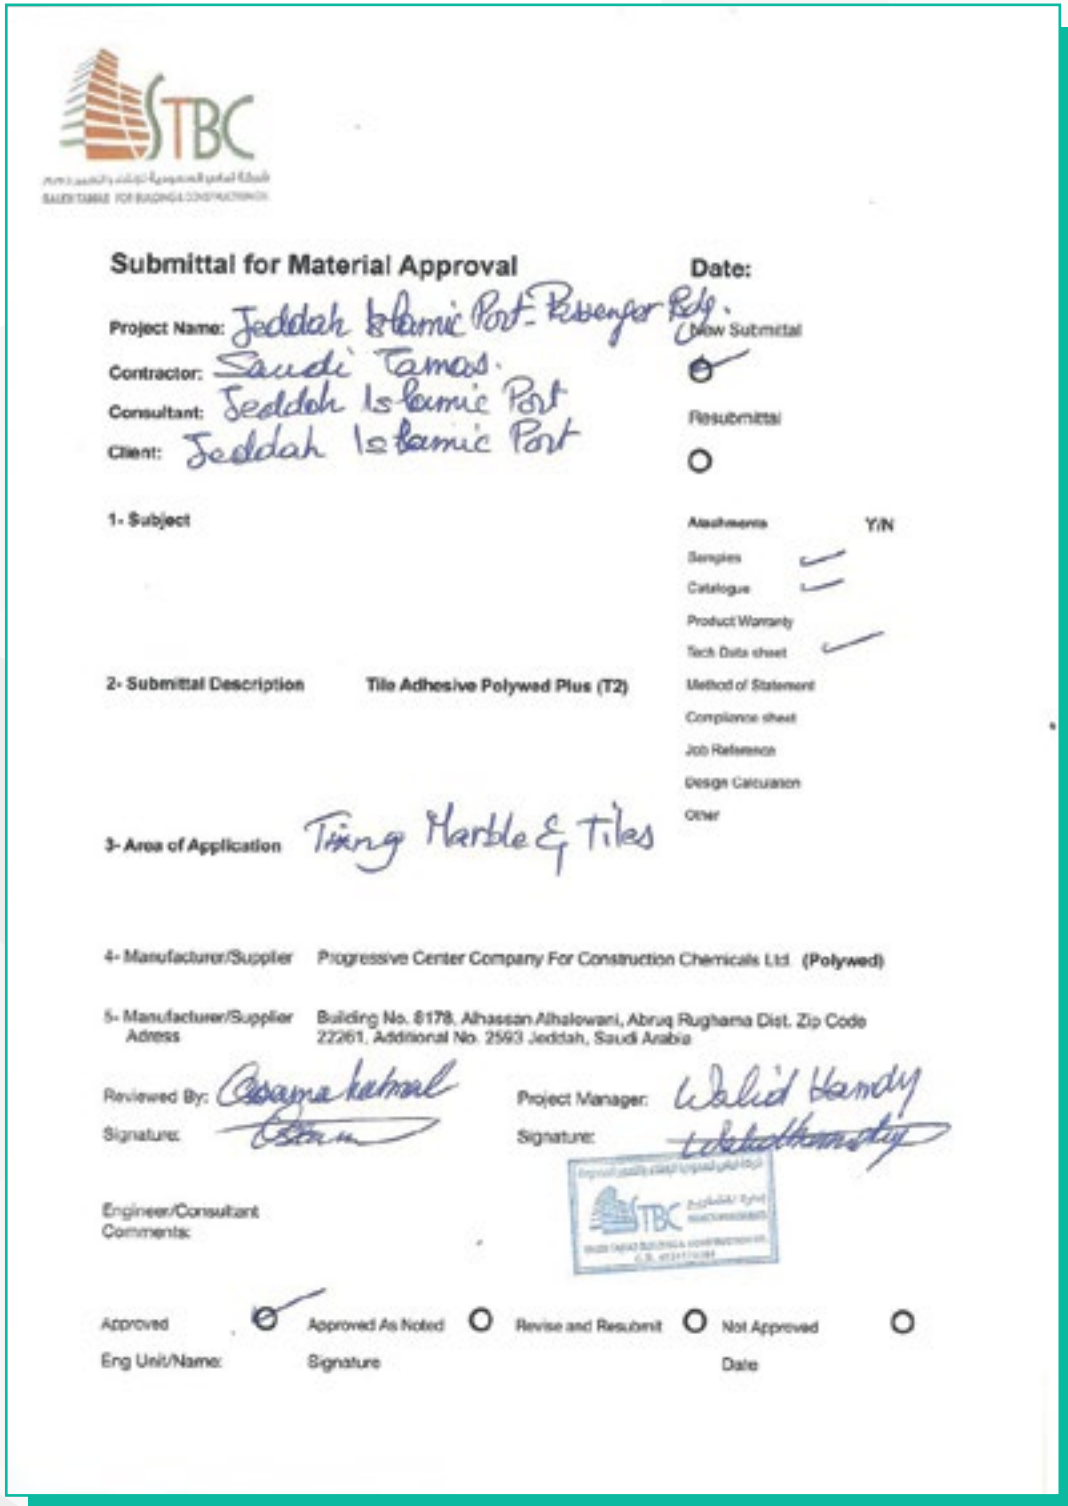 STBC
SAUDI TAMAS FOR BUILDING & CONSTRUCTION CO.
Submittal for Material Approval
Date:
Project Name: Jeddah Islamic Port - Passenger Bdg.
New Submittal
Contractor: Saudi Tamas.
Consultant: Jeddah Islamic Port
Resubmittal
Client: Jeddah Islamic Port
1- Subject
Attachments Y/N
Samples
Catalogue
Product Warranty
Tech Data sheet
2- Submittal Description Tile Adhesive Polywed Plus (T2)
Method of Statement
Compliance sheet
Job Reference
Design Calculation
Other
3- Area of Application Marble & Tiles
4- Manufacturer/Supplier Progressive Center Company For Construction Chemicals Ltd. (Polywed)
5- Manufacturer/Supplier Building No. 8178, Alhassan Alhalowani, Abruq Rughama Dist. Zip Code
Adress 22261, Additional No. 2593 Jeddah, Saudi Arabia
Reviewed By: Osama
Project Manager: Walid Hamdy
Signature:
Signature:
STBC
Engineer/Consultant
Comments:
Approved Approved As Noted Revise and Resubmit Not Approved
Eng Unit/Name: Signature Date